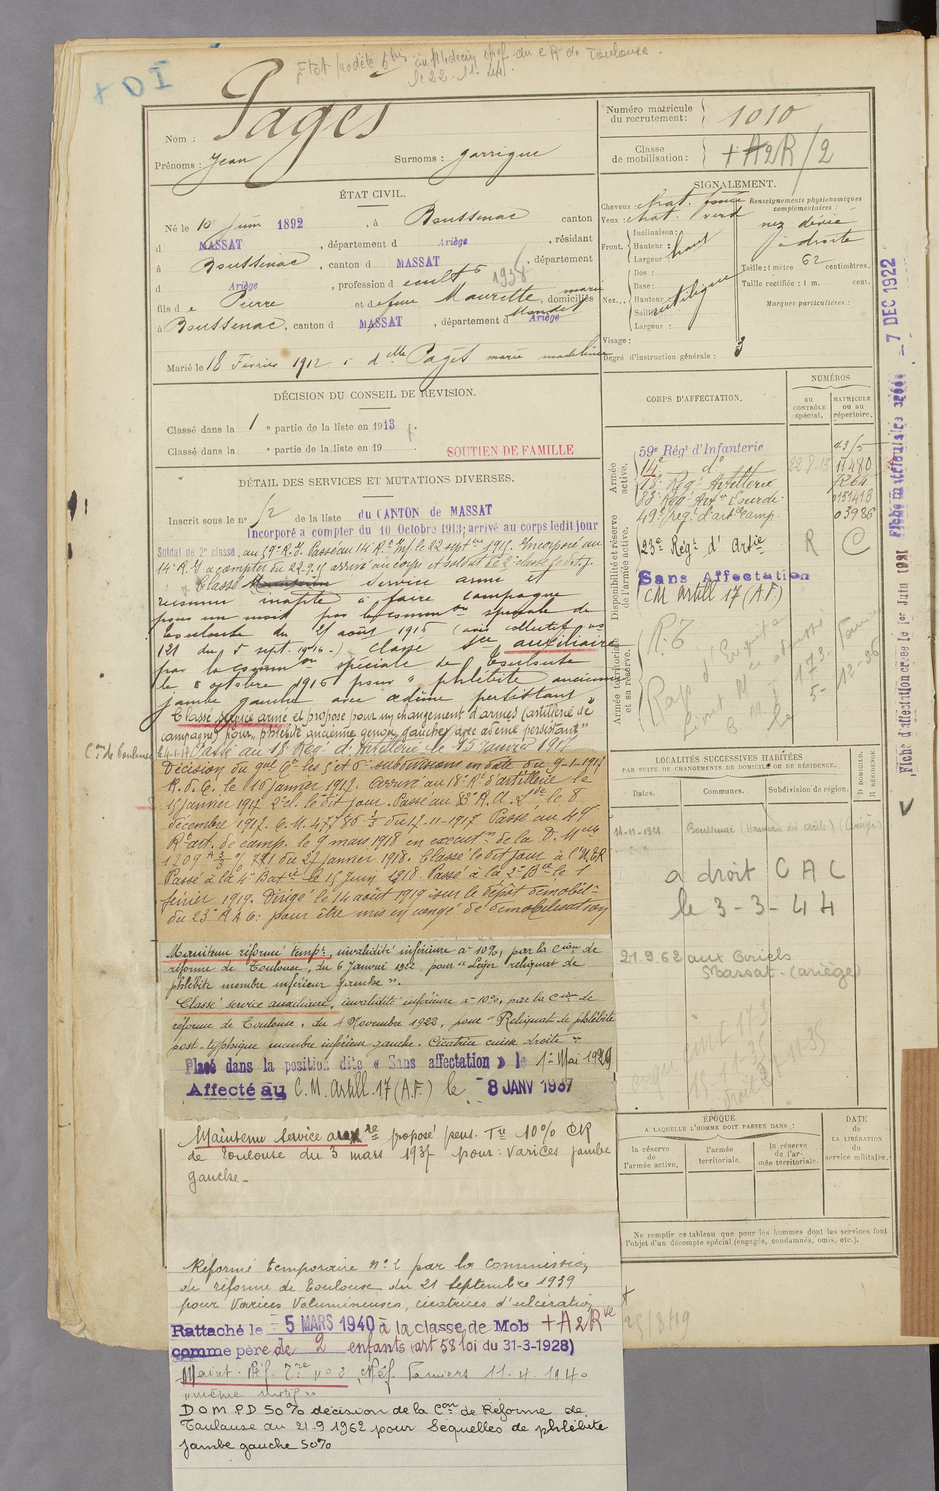 + DI
Etat modèle 6 bis au Médecin chef du CR de Toulouse.
le 22-11-44.
Nom : Pagès
Prénoms : Jean Surnoms : garrigue
Numéro matricule du recrutement : 1010
Classe de mobilisation : + A2R/2
ÉTAT CIVIL.
Né le 10 Juin 1892, à Boussenac canton
d MASSAT, département d Ariège, résidant
à Boussenac, canton d MASSAT, département
d Ariège, profession d cult 1938
fils de Pierre et de feue Maurette marie, domiciliés
à Boussenac, canton d MASSAT, département d Ariège
Marié le 18 Février 1912 à dlle Pagès marie madeleine
SIGNALEMENT.
Cheveux : chat.
Yeux : chat. vert
Front. Inclinaison :
Hauteur : haut
Largeur :
Nez... Dos :
Base :
Hauteur
Saillie
Largeur :
Visage :
Degré d'instruction générale : 3
Renseignements physionomiques complémentaires :
nez dévié
à droite
Taille : 1 mètre 62 centimètres.
Taille rectifiée : 1 m. cent.
Marques particulières :
DÉCISION DU CONSEIL DE REVISION.
Classé dans la 1 e partie de la liste en 1913
Classé dans la e partie de la liste en 19
SOUTIEN DE FAMILLE
DÉTAIL DES SERVICES ET MUTATIONS DIVERSES.
Inscrit sous le n° 52 de la liste du CANTON de MASSAT
Incorporé à compter du 10 Octobre 1913; arrivé au corps ledit jour
Soldat de 2e classe, au 59e R.I. Passé au 14e Rt Inf. le 22 septbre 1915. Incorporé au
14e R.I. à compter du 22-9-15 arrivé au corps et soldat de 2e classe le dit j.
Classé service armé et
reconnu inapte à faire campagne
pour un mois par la common spéciale de
Toulouse du 21 août 1915 (avis collectif nos
121 du 5 sept. 1916.) Classé sce auxiliaire
par la common spéciale de Toulouse
le 8 octobre 1916 pour "phlébite ancienne
jambe gauche avec œdème persistant"
Classé service armé et proposé pour un changement d'armes (artillerie de
campagne) pour "phlébite ancienne genou gauche avec œdème persistant"
Con de Toulouse 2-1-17. Passé au 18 Régt d'Artillerie le 15 janvier 1917
Décision du gal Ct les 5 et 6e subdivisions en date du 9-1-1917
R.d.C. le 10 janvier 1917. Arrivé au 18e Rt d'artillerie le
15 janvier 1917 2e cl. le dit jour. Passé au 83e R.A.Lde le 8
décembre 1917. C.M. 47786 3/3 du 17-11-1917 Passé au 49e
Rt art. de camp. le 9 mars 1918 en exécutn de la D. Mlle
1209 A 3/3 % 721 du 27 janvier 1918. Classé le dit jour à l'H.R.
Passé à la 4e Batie le 15 Juin 1918. Passé à la 2e Bie le 1
février 1919. Dirigé le 14 août 1919 sur le dépôt démobilr
du 23e R.A.C. pour être mis en congé de démobilisation
Maintenu réformé tempre, invalidité inférieure à 10%, par la Cion de
réforme de Toulouse, du 6 Janvier 1922, pour "Léger reliquat de
phlébite membre inférieur gauche".
Classé service auxiliaire, invalidité inférieure à 10%, par la Cion de
réforme de Toulouse, du 4 Novembre 1922, pour "Reliquat de phlébite
post-typhique membre inférieur gauche. Cicatrice cuisse droite"
Placé dans la position dite « Sans affectation » le 1er Mai 1929
Affecté au C.M. Artill. 17 (A.F.) le 8 JANV 1937
Maintenu service auxre proposé pens. Tre 10% CR
de Toulouse du 3 mars 1937 pour : varices jambe
gauche -
Réformé temporaire n°2 par la Commission
de réforme de Toulouse du 21 septembre 1939
pour Varices Volumineuses, cicatrices d'ulcération
Rattaché le 5 MARS 1940 à la classe de Mob + A2Rve
comme père de 2 enfants (art 58 loi du 31-3-1928)
Maint. Réf. Tre n° 2, Réf. Pamiers 11-4-1940
"même motif"
DOM PD 50% décision de la Con de Réforme de
Toulouse du 21.9.1962 pour Séquelles de phlébite
jambe gauche 50%
CORPS D'AFFECTATION.
NUMÉROS
AU CONTRÔLE spécial.
MATRICULE ou au répertoire.
Armée active.
59e Régt d'Infanterie
14e do 22.9.15 11480
18e Régt Artillerie 7264
83e Rég Artie Lourde 0151418
49e régt d'artie camp. 03986
Disponibilité et réserve de l'armée active.
23e Régt d'Artie R C
Sans Affectation
CM Artill 17 (A.F.)
Armée territoriale et sa réserve.
R.T
LOCALITÉS SUCCESSIVES HABITÉES
PAR SUITE DE CHANGEMENTS DE DOMICILE OU DE RÉSIDENCE.
Dates. Communes. Subdivision de région. D DOMICILE. R RÉSIDENCE.
Boussenac
a droit CAC
le 3-3-44
21.9.62 aux Curiels
Massat - (ariège)
ÉPOQUE
A LAQUELLE L'HOMME DOIT PASSER DANS :
la réserve de l'armée active.
l'armée territoriale.
la réserve de l'armée territoriale.
DATE de LA LIBÉRATION du service militaire.
Ne remplir ce tableau que pour les hommes dont les services font
l'objet d'un décompte spécial (engagés, condamnés, omis, etc.).
Fiche d'affectation créée le 1er Juin 1921 Fiche matriculaire créée 7 DEC 1922